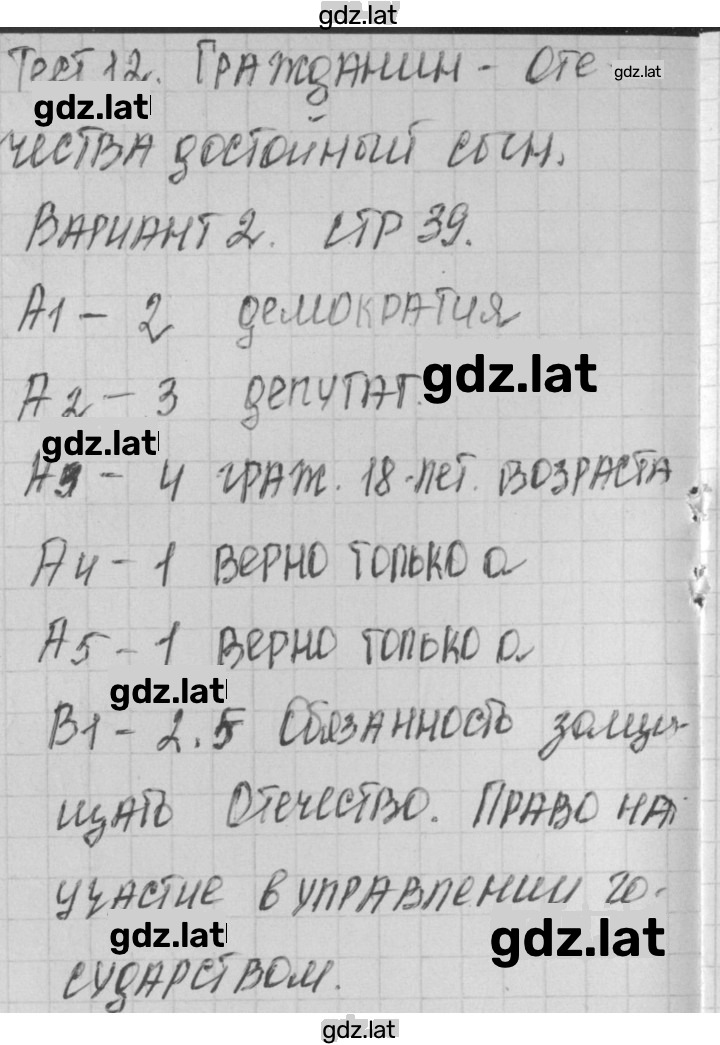 gdz.lat
Тест 12. Гражданин - Оте-
gdz.lat
gdz.lat
чества достойный сын.
Вариант 2. стр 39.
А1 - 2 демократия
gdz.lat
А2 - 3 депутат.
gdz.lat
А3 - 4 граж. 18-лет. возраста
А4 - 1 верно только а
А5 - 1 верно только а
gdz.lat
В1 - 2.5 Обязанность защи-
щать Отечество. Право на
участие в управлении го-
gdz.lat
gdz.lat
сударством.
gdz.lat